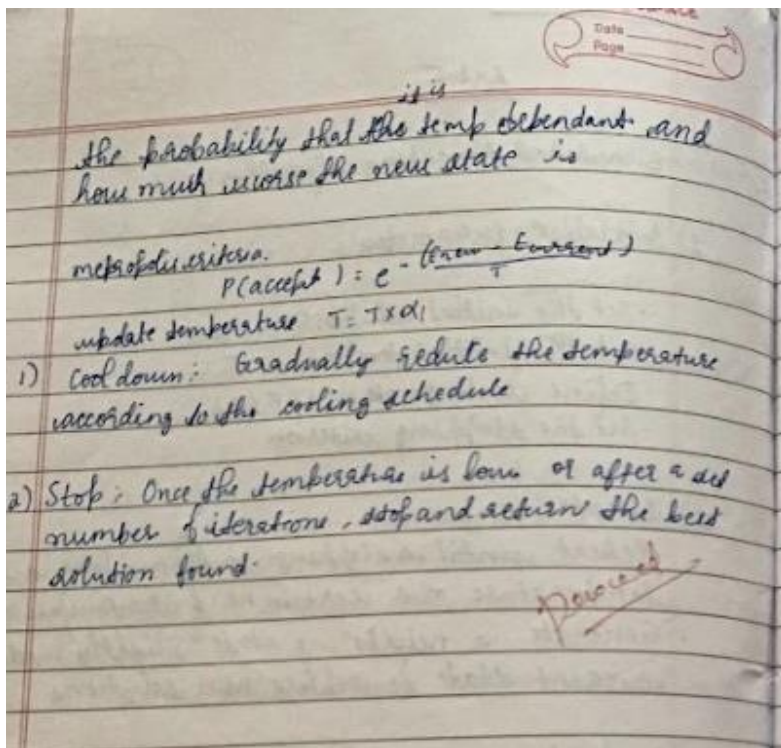 Date
Page
it is
the probability that the temp debendant and
how much worse the new state is
metropolis criteria.
P(accept) = e - (Enew - Ecurrent) / T
update temperature T = T x α,
1) Cool down: Gradually reduce the temperature
according to the cooling schedule
2) Stop: Once the temperature is low or after a set
number of iterations, stop and return the best
solution found.